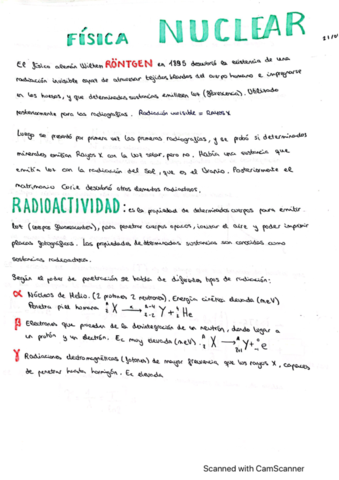 FÍSICA NUCLEAR
El físico alemán Wilhem RÖNTGEN en 1895 descubrió la existencia de una
radiación invisible capaz de atravesar tejidos blandos del cuerpo humano e impregnarse
en los huesos, y que determinadas sustancias emitiesen luz (fluorescencia). Utilizado
posteriormente para las radiografías. Radiación invisible = Rayos X
Luego se presentó por primera vez las primeras radiografías, y se probó si determinados
minerales emitían Rayos X con la luz solar, pero no. Había una sustancia que
emitía luz con la radiación del Sol, que es el Uranio. Posteriormente el
matrimonio Curie descubrió otros elementos radiactivos.
RADIOACTIVIDAD: es la propiedad de determinados cuerpos para emitir
luz (cuerpos fluorescentes), para penetrar cuerpos opacos, ionizar el aire y poder imprimir
placas fotográficas. Las propiedades de determinadas sustancias son conocidas como
sustancias radioactivas.
Según el poder de penetración se habla de diferentes tipos de radiación:
α Núcleos de Helio. (2 protones 2 neutrones). Energía cinética elevada (MeV)
Penetra piel humana X → Y + He
β Electrones que proceden de la desintegración de un neutrón, dando lugar a
un protón y un electrón. Ec muy elevada (MeV). X → Y + e
γ Radiaciones electromagnéticas (fotones) de mayor frecuencia que los rayos X, capaces
de penetrar hasta hormigón. Ec elevada
Scanned with CamScanner